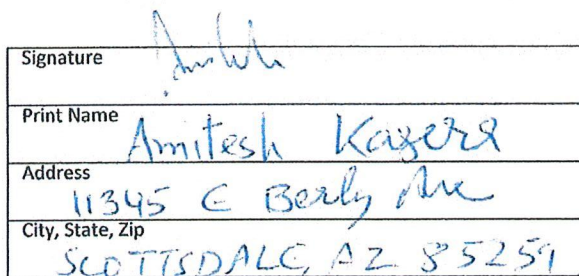 Signature
Print Name
Amitesh Kagera
Address
11345 E Berly Ave
City, State, Zip
SCOTTSDALE, AZ 85259